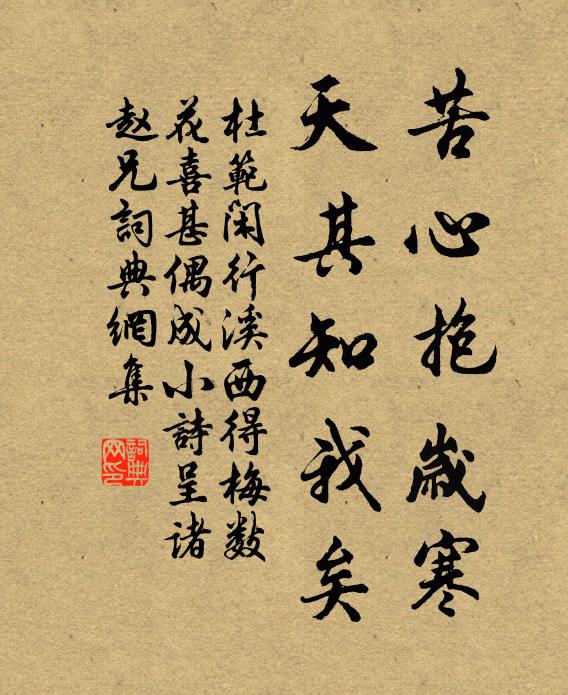 苦心抱歲寒
天其知我矣
杜範閑行溪西得梅數
花喜甚偶成小詩呈诸
赵兄詞典網集
詞典网印